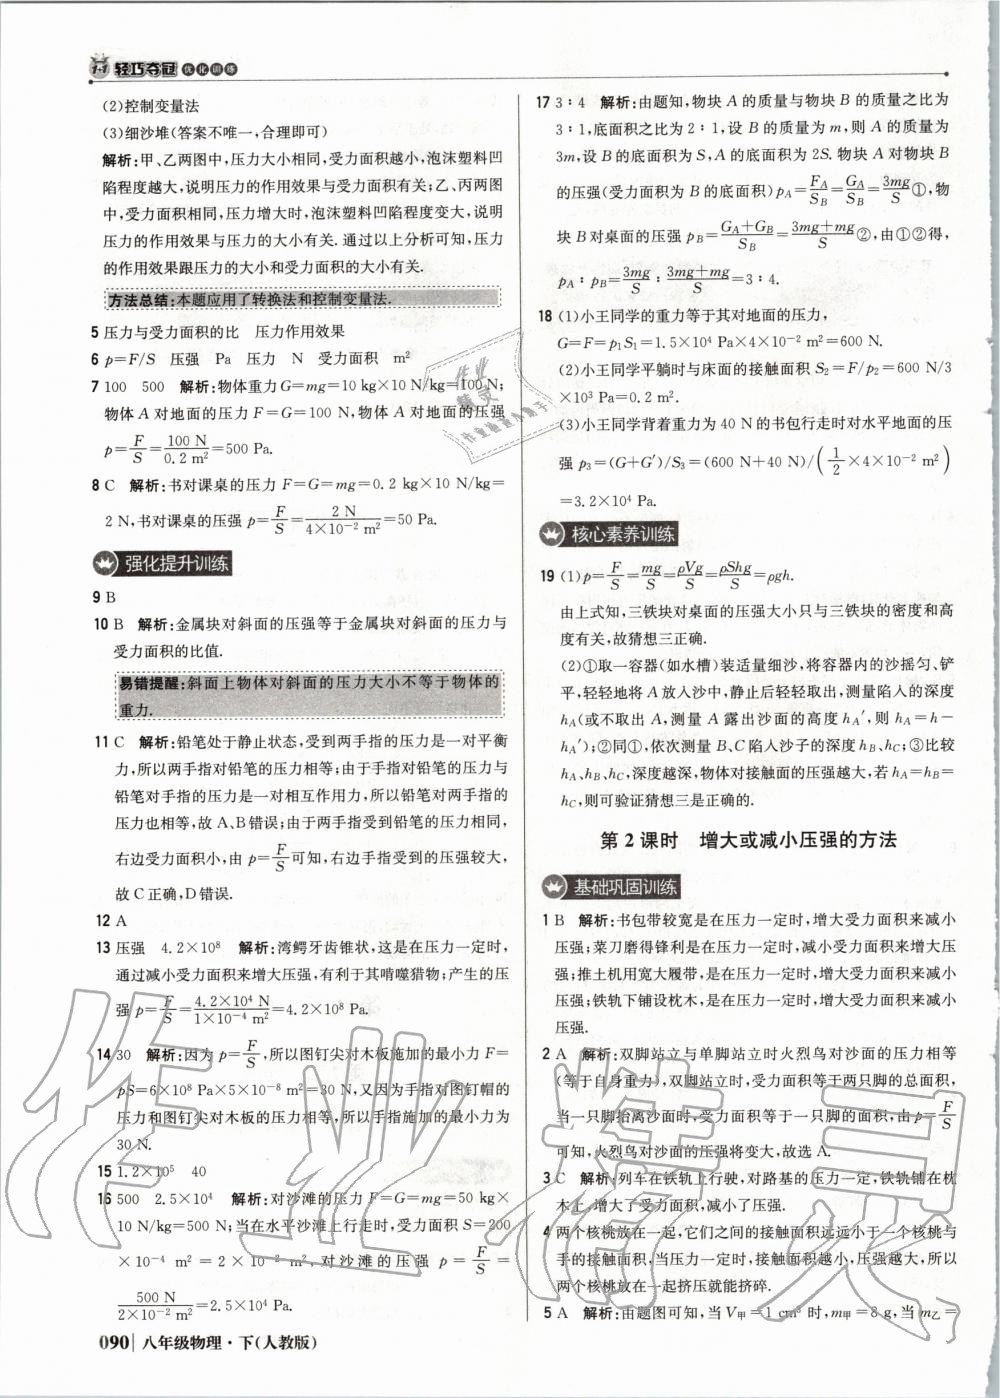 1+1 轻巧夺冠 优化训练
(2)控制变量法
(3)细沙堆(答案不唯一,合理即可)
解析:甲、乙两图中,压力大小相同,受力面积越小,泡沫塑料凹
陷程度越大,说明压力的作用效果与受力面积有关;乙、丙两图
中,受力面积相同,压力增大时,泡沫塑料凹陷程度变大,说明
压力的作用效果与压力的大小有关. 通过以上分析可知,压力
的作用效果跟压力的大小和受力面积的大小有关.
方法总结:本题应用了转换法和控制变量法.
5 压力与受力面积的比 压力作用效果
6 p=F/S 压强 Pa 压力 N 受力面积 m²
7 100 500 解析:物体重力G=mg=10 kg×10 N/kg=100 N;
物体 A 对地面的压力 F=G=100 N,物体 A 对地面的压强
p=F/S=100 N/0.2 m²=500 Pa.
8 C 解析:书对课桌的压力 F=G=mg=0.2 kg×10 N/kg=
2 N,书对课桌的压强 p=F/S=2 N/4×10⁻² m²=50 Pa.
强化提升训练
9 B
10 B 解析:金属块对斜面的压强等于金属块对斜面的压力与
受力面积的比值.
易错提醒:斜面上物体对斜面的压力大小不等于物体的
重力.
11 C 解析:铅笔处于静止状态,受到两手指的压力是一对平衡
力,所以两手指对铅笔的压力相等;由于手指对铅笔的压力与
铅笔对手指的压力是一对相互作用力,所以铅笔对两手指的
压力也相等,故 A、B 错误;由于两手指受到铅笔的压力相同,
右边受力面积小,由 p=F/S可知,右边手指受到的压强较大,
故 C 正确,D 错误.
12 A
13 压强 4.2×10⁸ 解析:湾鳄牙齿锥状,这是在压力一定时,
通过减小受力面积来增大压强,有利于其啃噬猎物;产生的压
强 p=F/S=4.2×10⁴ N/1×10⁻⁴ m²=4.2×10⁸ Pa.
14 30 解析:因为 p=F/S,所以图钉尖对木板施加的最小力 F=
pS=6×10⁸ Pa×5×10⁻⁸ m²=30 N,又因为手指对图钉帽的
压力和图钉尖对木板的压力相等,所以手指施加的最小力为
30 N.
15 1.2×10⁵ 40
16 500 2.5×10⁴ 解析:对沙滩的压力 F=G=mg=50 kg×
10 N/kg=500 N;当在水平沙滩上行走时,受力面积 S=200
×10⁻⁴ m²=2×10⁻² m²,对沙滩的压强 p=F/S=
500 N/2×10⁻² m²=2.5×10⁴ Pa.
090 八年级物理·下(人教版)
17 3∶4 解析:由题知,物块 A 的质量与物块 B 的质量之比为
3∶1,底面积之比为 2∶1,设 B 的质量为 m,则 A 的质量为
3m,设 B 的底面积为 S,A 的底面积为 2S. 物块 A 对物块 B
的压强(受力面积为 B 的底面积)pA=FA/SB=GA/SB=3mg/S①,物
块 B 对桌面的压强 pB=GA+GB/SB=3mg+mg/S②,由①②得,
pA∶pB=3mg/S∶3mg+mg/S=3∶4.
18 (1)小王同学的重力等于其对地面的压力,
G=F=p₁S₁=1.5×10⁴ Pa×4×10⁻² m²=600 N.
(2)小王同学平躺时与床面的接触面积 S₂=F/p₂=600 N/3
×10³ Pa=0.2 m².
(3)小王同学背着重力为 40 N 的书包行走时对水平地面的压
强 p₃=(G+G′)/S₃=(600 N+40 N)/(1/2×4×10⁻² m²)
=3.2×10⁴ Pa.
核心素养训练
19 (1)p=F/S=mg/S=ρVg/S=ρShg/S=ρgh.
由上式知,三铁块对桌面的压强大小只与三铁块的密度和高
度有关,故猜想三正确.
(2)①取一容器(如水槽)装适量细沙,将容器内的沙摇匀、铲
平,轻轻地将 A 放入沙中,静止后轻轻取出,测量陷入的深度
hA(或不取出 A,测量 A 露出沙面的高度 hA′,则 hA=h-
hA′);②同①,依次测量 B、C 陷入沙子的深度 hB、hC;③比较
hA、hB、hC,深度越深,物体对接触面的压强越大,若 hA=hB=
hC,则可验证猜想三是正确的.
第 2 课时 增大或减小压强的方法
基础巩固训练
1 B 解析:书包带较宽是在压力一定时,增大受力面积来减小
压强;菜刀磨得锋利是在压力一定时,减小受力面积来增大压
强;推土机用宽大履带,是在压力一定时,增大受力面积来减小
压强;铁轨下铺设枕木,是在压力一定时,增大受力面积来减小
压强.
2 A 解析:双脚站立与单脚站立时火烈鸟对沙面的压力相等
(等于自身重力),双脚站立时,受力面积等于两只脚的总面积,
当一只脚抬离沙面时,受力面积等于一只脚的面积,由 p=F/S
可知,火烈鸟对沙面的压强变大,故选 A.
3 C 解析:列车在铁轨上行驶,对路基的压力一定,铁轨铺在枕
木上,增大了受力面积,减小了压强.
4 两个核桃放在一起,它们之间的接触面积远远小于一个核桃与
手的接触面积,当压力一定时,接触面积越小,压强越大,所以
两个核桃放在一起挤压就能挤碎.
5 A 解析:由题图可知,当 V甲=1 cm³ 时,m甲=8 g,当 m乙=
作业精灵